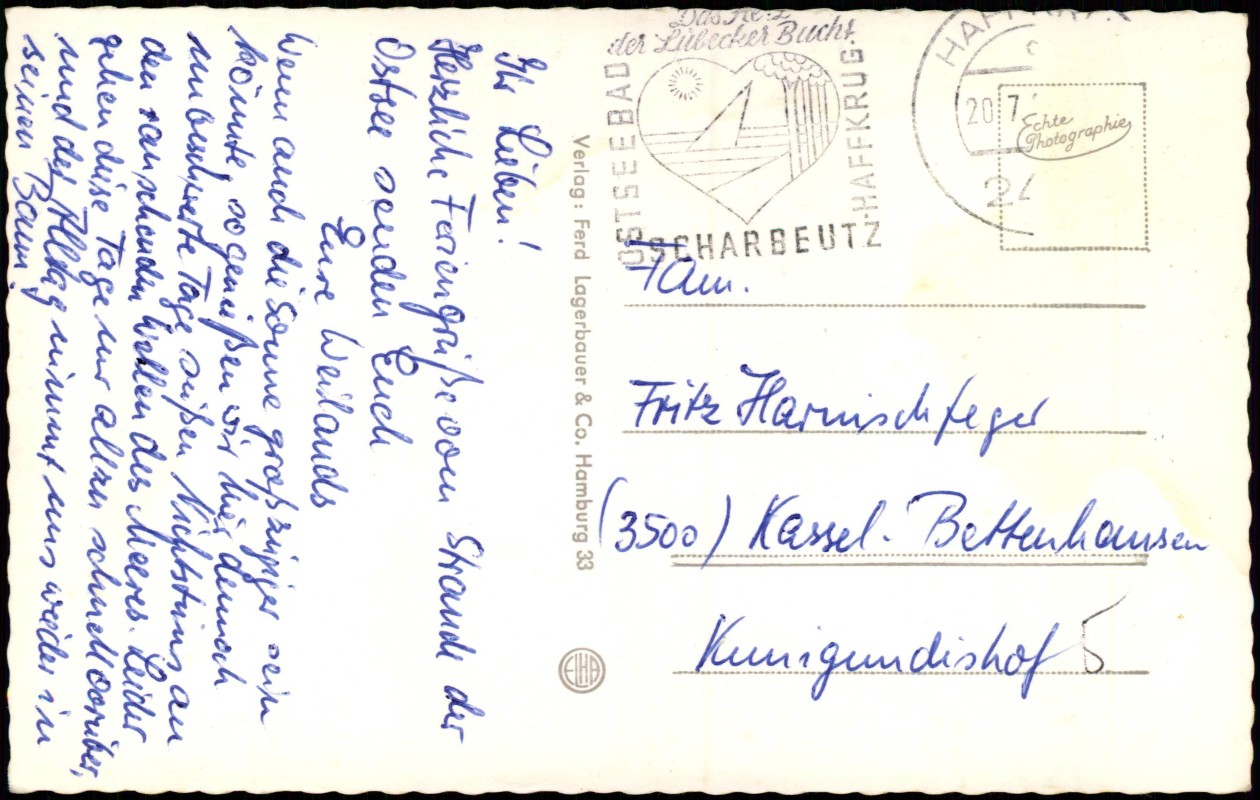 Ihr Lieben!
Herzliche Feriengrüße vom Strand der
Ostsee senden Euch
Eure Weilands
Wenn auch die Sonne großzügiger sein
könnte, so genießen wir hier dennoch
unbeschwerte Tage süßen Nichtstuns an
den rauschenden Wellen des Meeres. Leider
gehen diese Tage nur allzu schnell vorüber,
und der Alltag nimmt uns wieder in
seinen Bann!
Verlag: Ferd Lagerbauer & Co. Hamburg 33
Das Herz
der Lübecker Bucht
OSTSEEBAD
SCHARBEUTZ-HAFFKRUG
20 7
24
Echte
Photographie
Fam.
Fritz Harnischfeger
(3500) Kassel-Bettenhausen
Kunigundishof 5